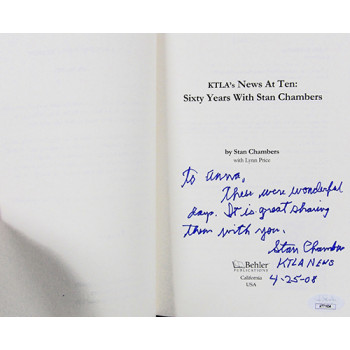 KTLA's News At Ten:
Sixty Years With Stan Chambers
by Stan Chambers
with Lynn Price
To Anna,
These were wonderful
days. It is great sharing
them with you.
Stan Chambers
KTLA NEWS
4-25-08
Behler
PUBLICATIONS
California
USA